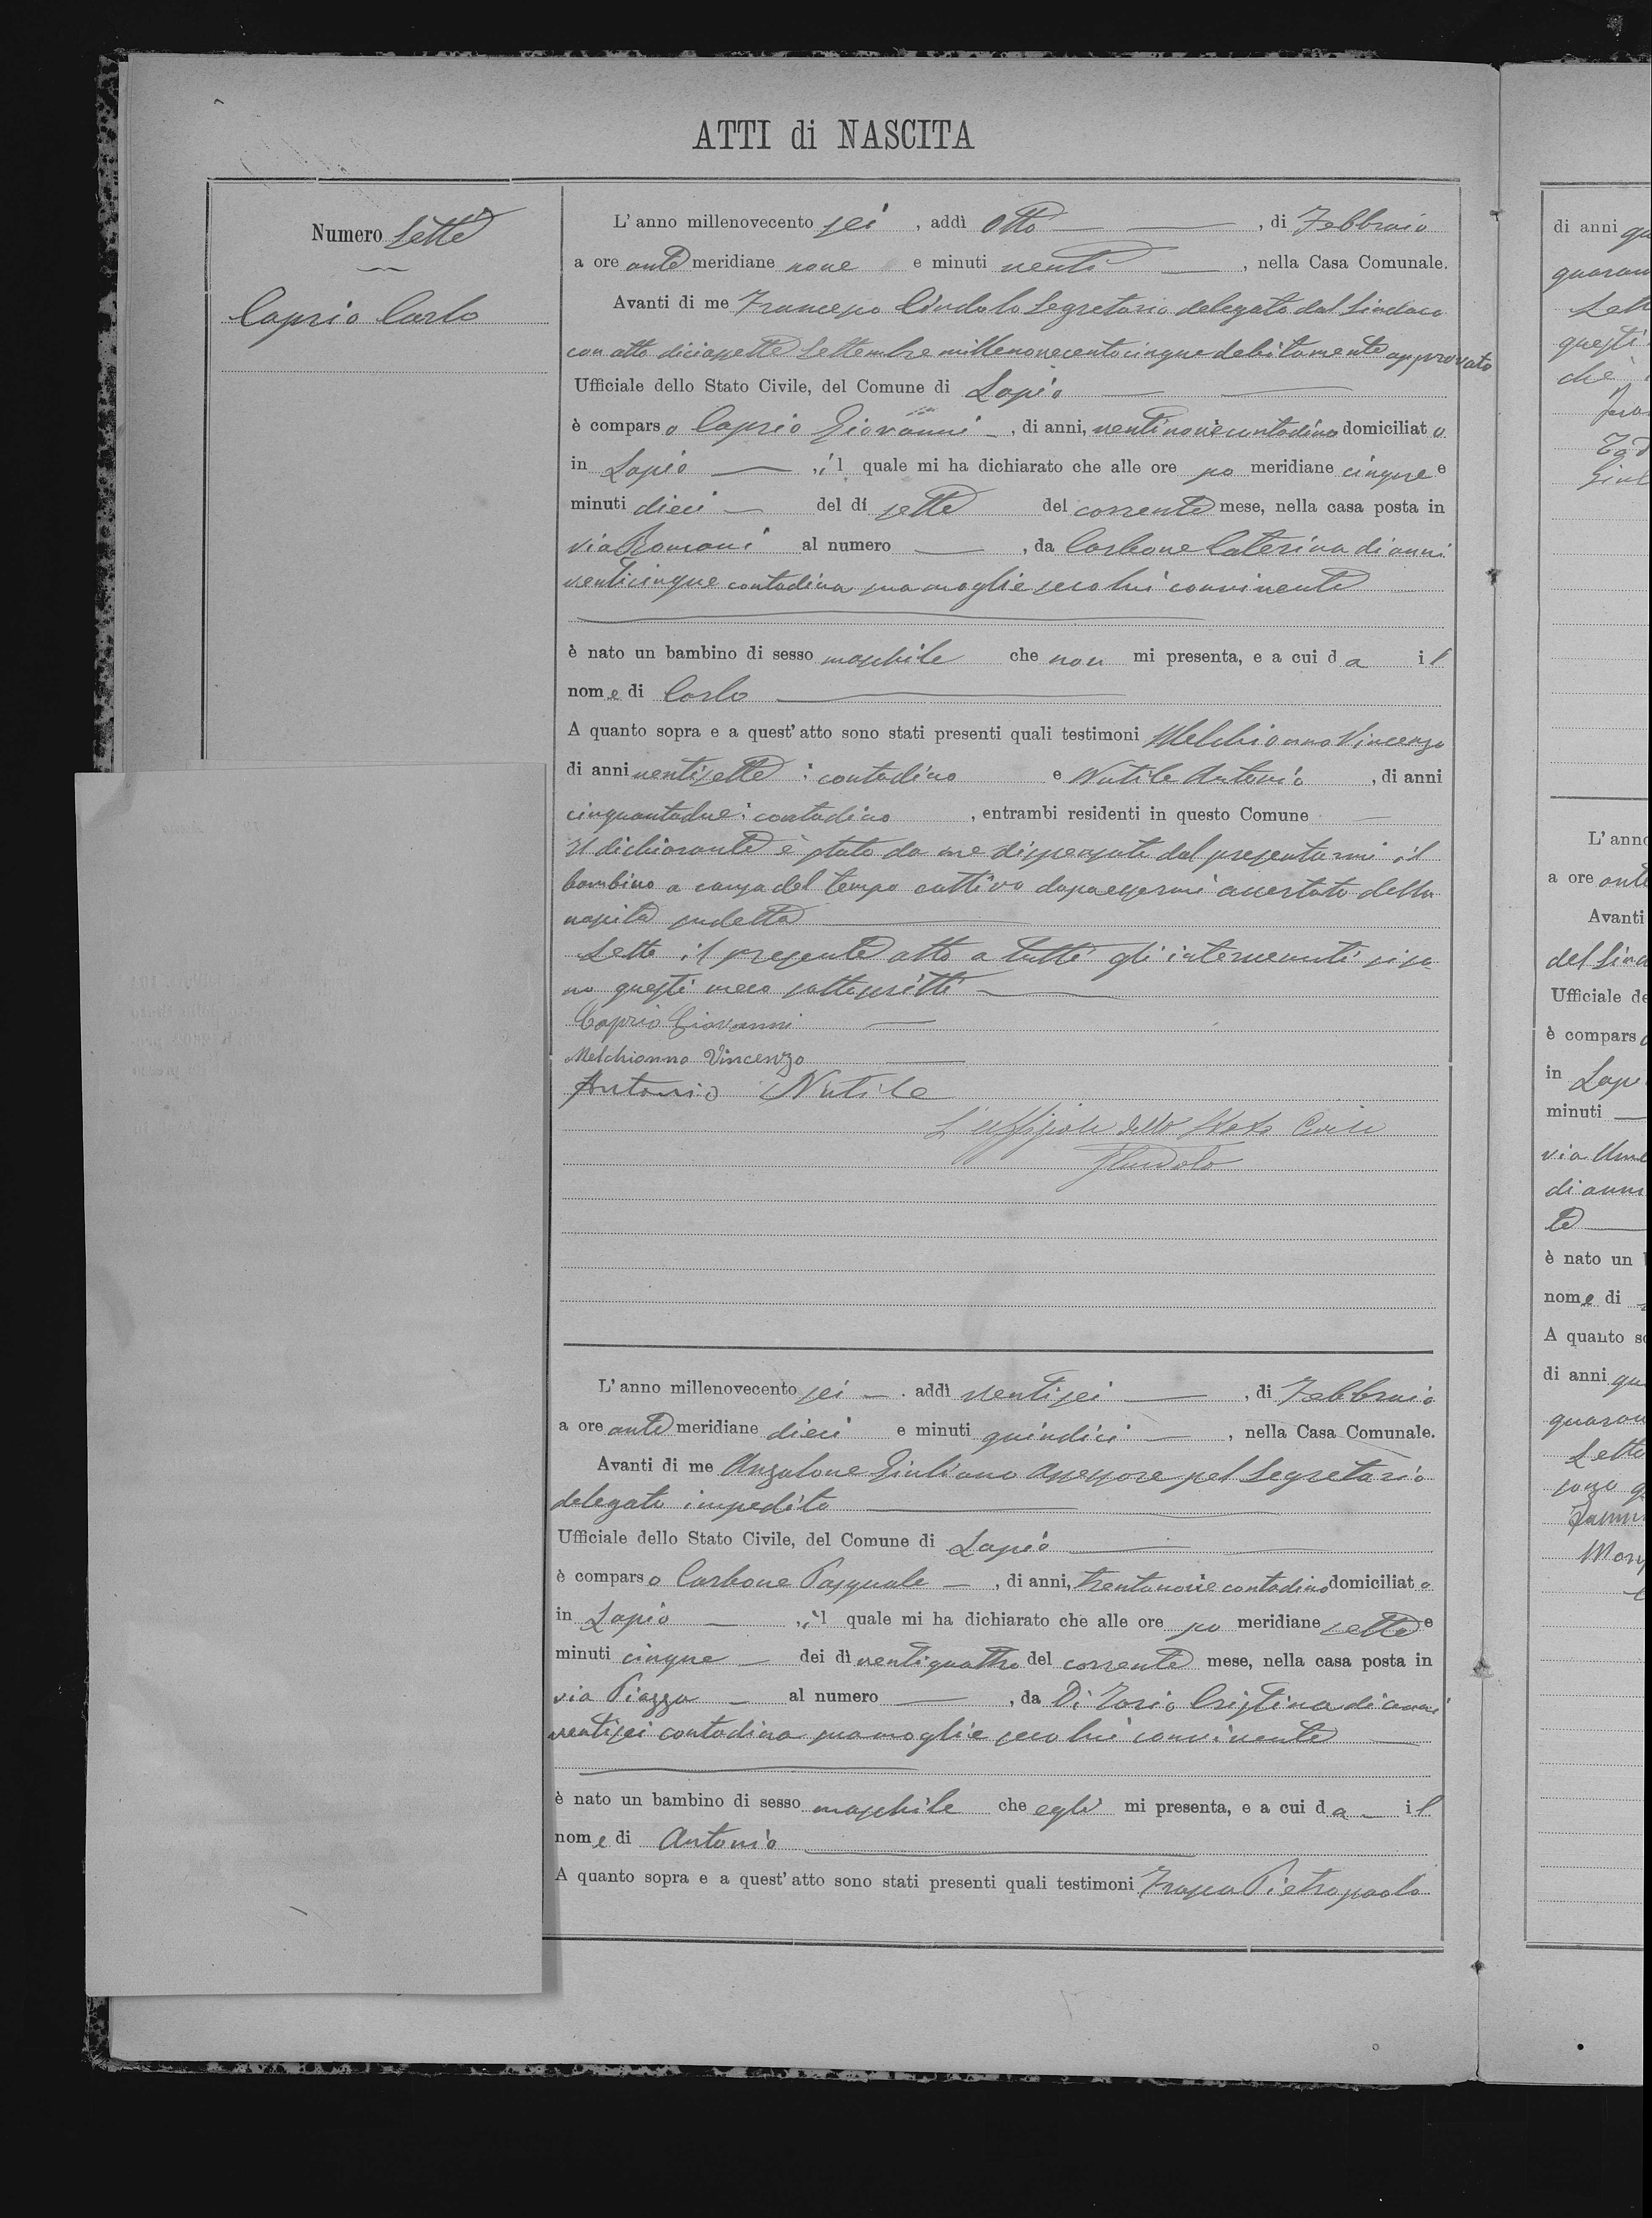 ATTI di NASCITA
Numero Sette
Caprio Carlo
L'anno millenovecento sei, addì otto, di Febbraio
a ore ante meridiane nove e minuti venti, nella Casa Comunale.
Avanti di me Francesco Cindolo Segretario delegato dal Sindaco
con atto diciassette Settembre millenovecentocinque debitamente approvato
Ufficiale dello Stato Civile, del Comune di Lapio
è comparso Caprio Giovanni, di anni, ventinove contadino domiciliato
in Lapio, il quale mi ha dichiarato che alle ore po meridiane cinque e
minuti dieci del dí sette del corrente mese, nella casa posta in
via Romani al numero, da Carbone Caterina di anni
venticinque contadina sua moglie seco lui convivente
è nato un bambino di sesso maschile che non mi presenta, e a cui da il
nome di Carlo
A quanto sopra e a quest'atto sono stati presenti quali testimoni Melchionno Vincenzo
di anni ventisette: contadino e Nutile Antonio, di anni
cinquantadue: contadino, entrambi residenti in questo Comune
Il dichiarante è stato da me dispensato dal presentarmi il
bambino a causa del tempo cattivo dopo essermi accertato della
nascita sudetta
Letto il presente atto a tutti gli intervenuti si so
no questi meco sottoscritti
Caprio Giovanni
Melchionno Vincenzo
Antonio Nutile
L'uffiziale dello Stato Civile
FCindolo
L'anno millenovecento sei. addì ventisei, di Febbraio
a ore ante meridiane dieci e minuti quindici, nella Casa Comunale.
Avanti di me Anzalone Giuliano Assessore pel Segretario
delegato impedito
Ufficiale dello Stato Civile, del Comune di Lapio
è comparso Carbone Pasquale, di anni, trentanove contadino domiciliato
in Lapio, il quale mi ha dichiarato che alle ore po meridiane sette e
minuti cinque dei dì ventiquattro del corrente mese, nella casa posta in
via Piazza al numero, da Di Iorio Cristina di anni
ventisei contadina sua moglie seco lui convivente
è nato un bambino di sesso maschile che egli mi presenta, e a cui da il
nome di Antonio
A quanto sopra e a quest'atto sono stati presenti quali testimoni Trosca Pietropaolo
di anni
L'anno
a ore ante
Avanti
Ufficiale
è compars
in Lapio
minuti
di anni
è nato un
nome di
A quanto
di anni
Letto